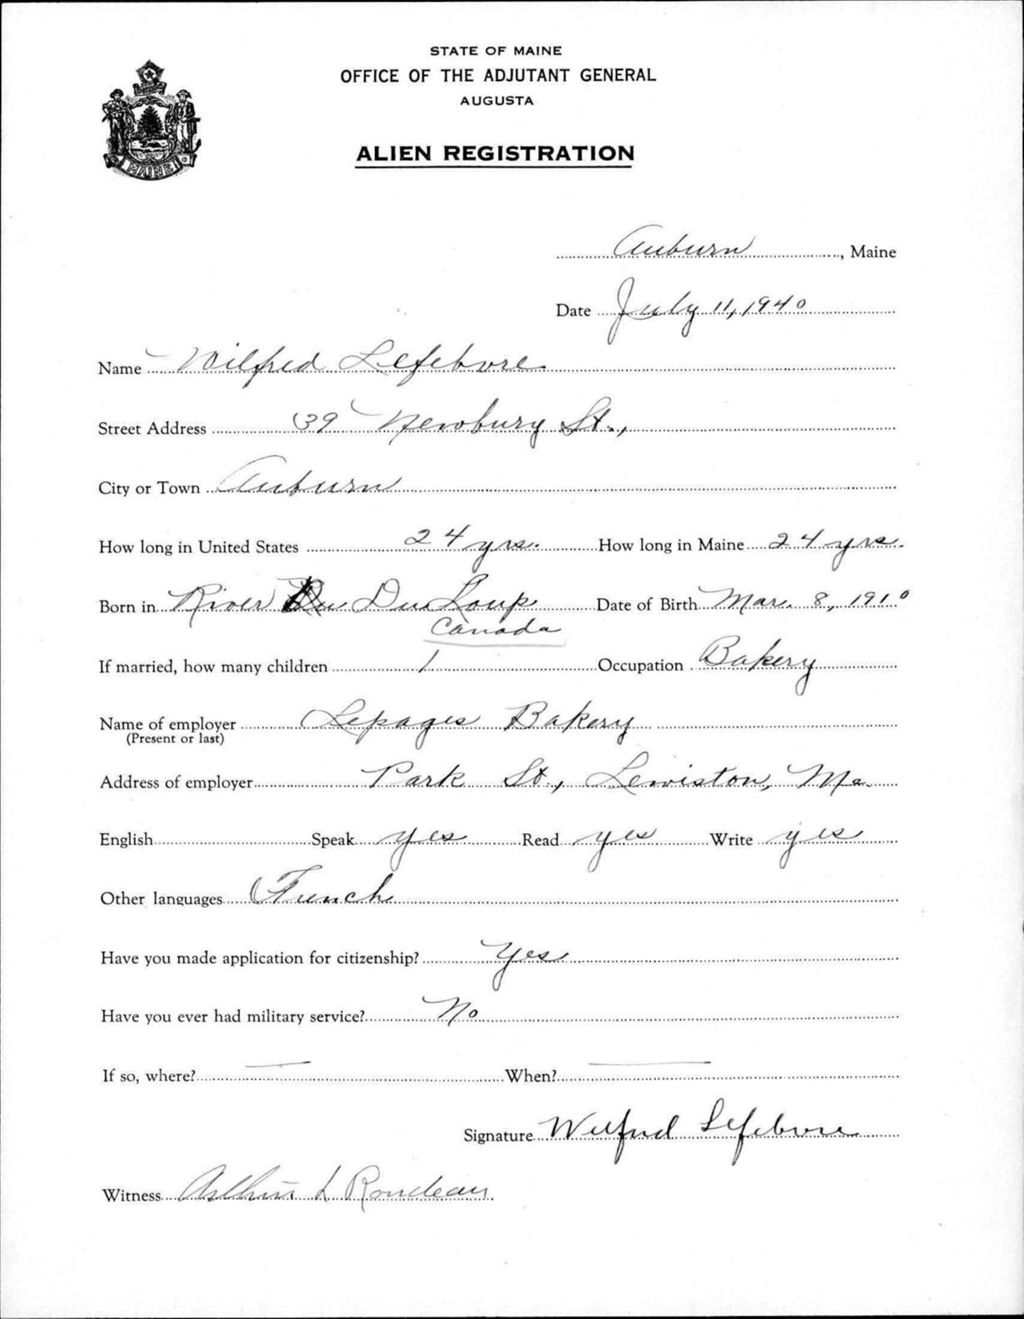 STATE OF MAINE
OFFICE OF THE ADJUTANT GENERAL
AUGUSTA
ALIEN REGISTRATION
MAINE
Auburn, Maine
Date July 11, 1940
Name Wilfred Lefebvre
Street Address 39 Newbury St.,
City or Town Auburn
How long in United States 24 yrs. How long in Maine 24 yrs.
Born in River Du Loup Date of Birth Mar. 8, 1910
Canada
If married, how many children 1 Occupation Bakery
Name of employer Lepages Bakery
(Present or last)
Address of employer Park St., Lewiston, Me.
English Speak yes Read yes Write yes
Other languages French
Have you made application for citizenship? Yes
Have you ever had military service? No
If so, where? — When? —
Signature Wilfred Lefebvre
Witness Arthur L Rondeau